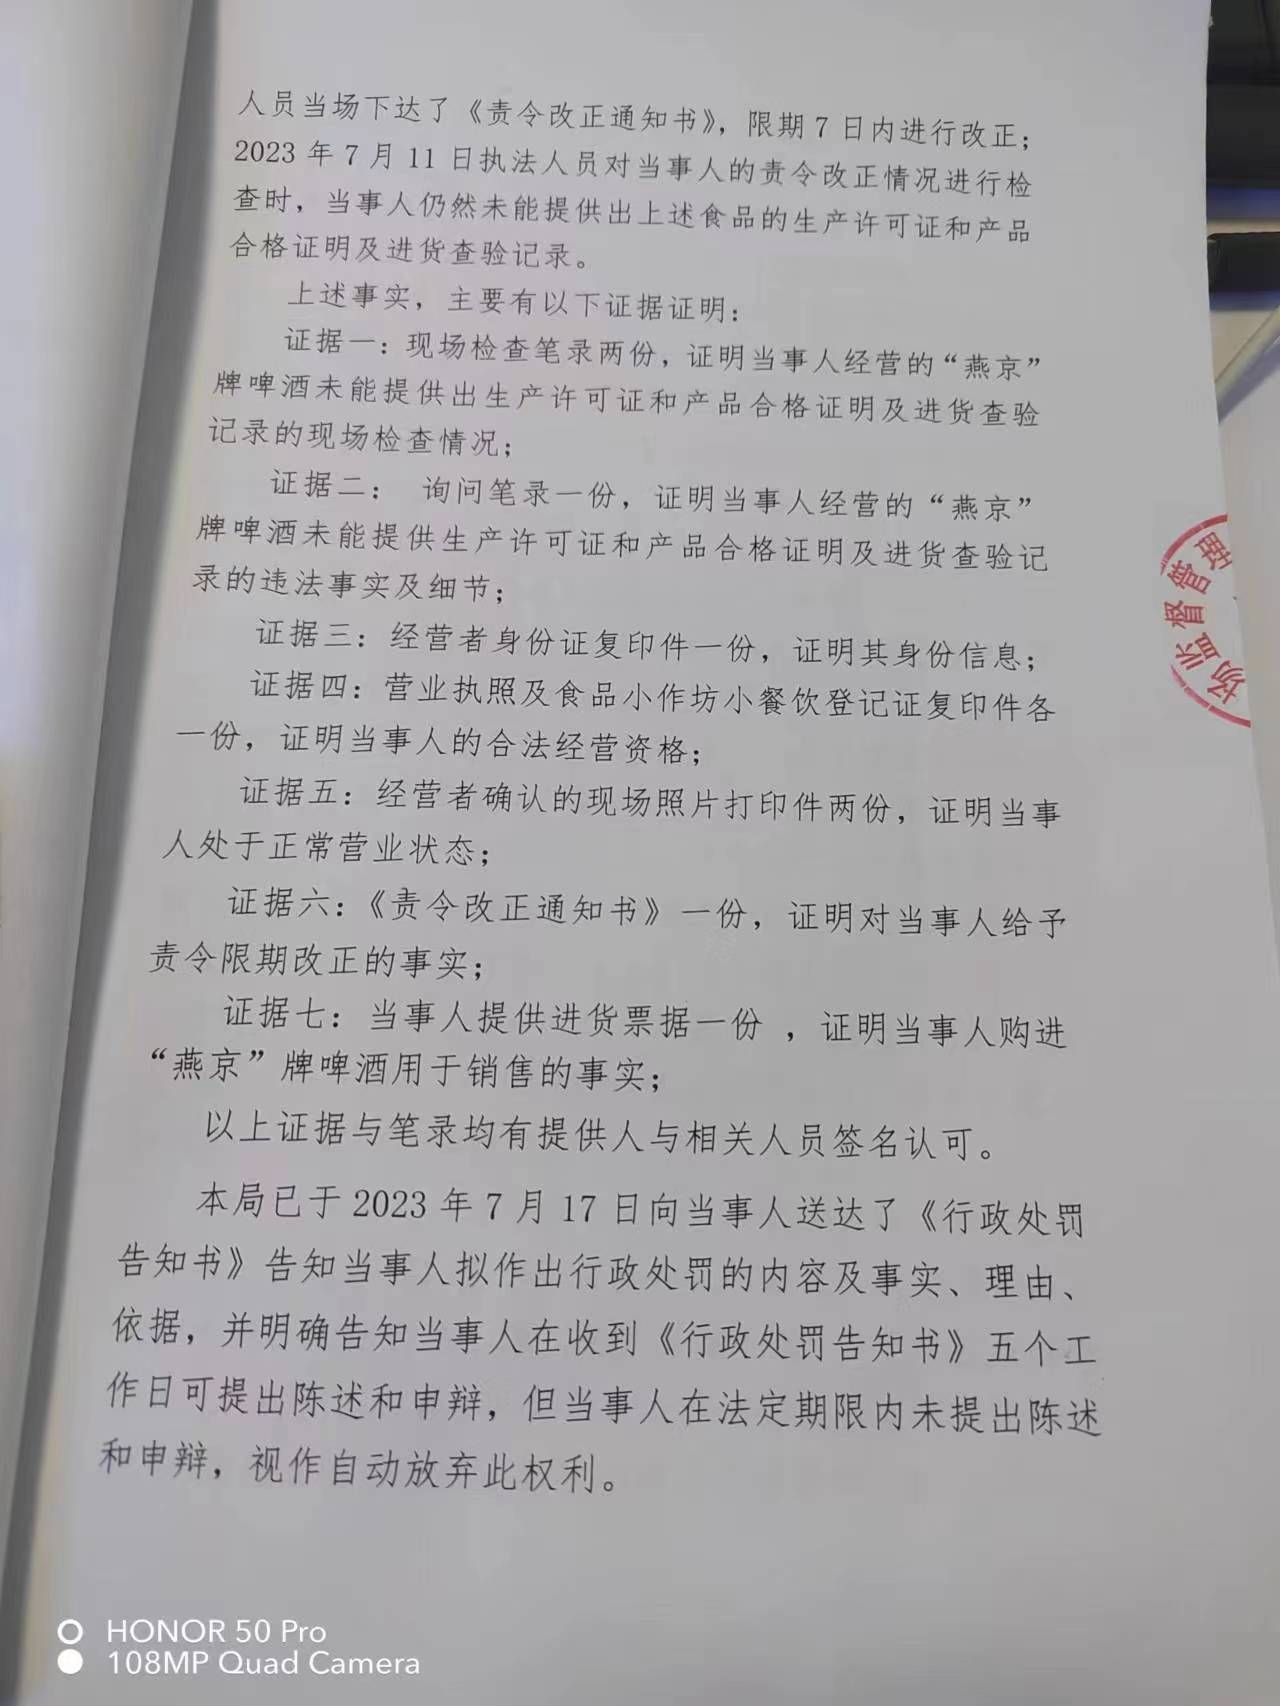 人员当场下达了《责令改正通知书》，限期7日内进行改正；
2023年7月11日执法人员对当事人的责令改正情况进行检
查时，当事人仍然未能提供出上述食品的生产许可证和产品
合格证明及进货查验记录。
上述事实，主要有以下证据证明：
证据一：现场检查笔录两份，证明当事人经营的“燕京”
牌啤酒未能提供出生产许可证和产品合格证明及进货查验
记录的现场检查情况；
证据二： 询问笔录一份，证明当事人经营的“燕京”
牌啤酒未能提供生产许可证和产品合格证明及进货查验记
录的违法事实及细节；
证据三：经营者身份证复印件一份，证明其身份信息；
证据四：营业执照及食品小作坊小餐饮登记证复印件各
一份，证明当事人的合法经营资格；
证据五：经营者确认的现场照片打印件两份，证明当事
人处于正常营业状态；
证据六：《责令改正通知书》一份，证明对当事人给予
责令限期改正的事实；
证据七：当事人提供进货票据一份 ，证明当事人购进
“燕京”牌啤酒用于销售的事实；
以上证据与笔录均有提供人与相关人员签名认可。
本局已于2023年7月17日向当事人送达了《行政处罚
告知书》告知当事人拟作出行政处罚的内容及事实、理由、
依据，并明确告知当事人在收到《行政处罚告知书》五个工
作日可提出陈述和申辩，但当事人在法定期限内未提出陈述
和申辩，视作自动放弃此权利。
场监督管理
HONOR 50 Pro
108MP Quad Camera